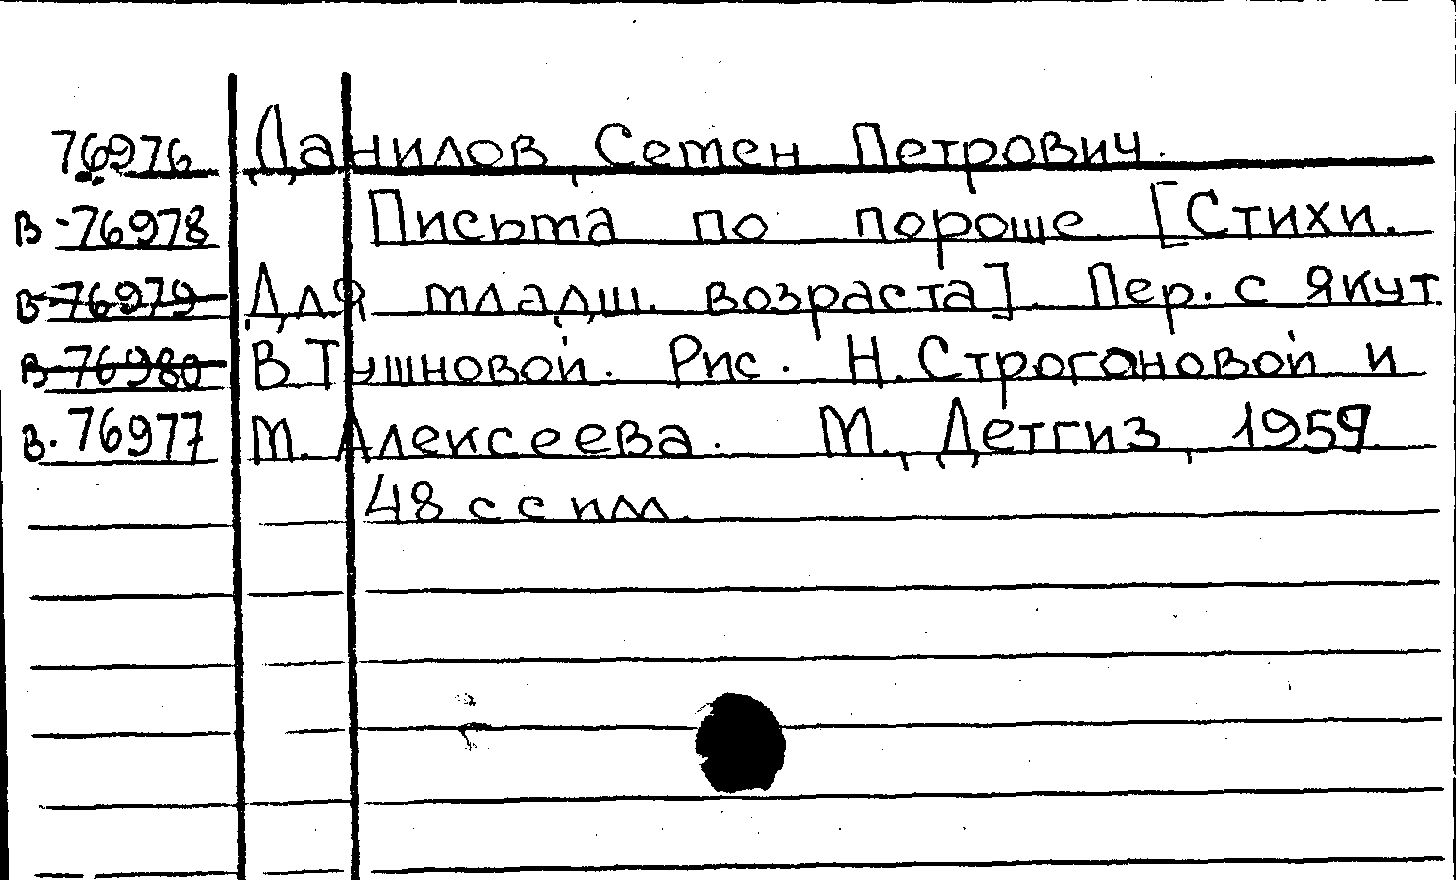 76976 Данилов, Семен Петрович.
В-76978 Письма по пороше. [Стихи.
В-76979 Для младш. возраста]. Пер. с якут.
В-76980 В.Тушновой. Рис. Н.Строгановой и
В.76977 М.Алексеева. М., Детгиз, 1959.
48 с с илл.